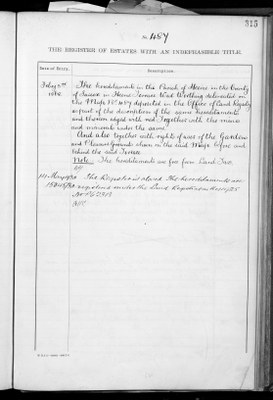 315
No. 487
THE REGISTER OF ESTATES WITH AN INDEFEASIBLE TITLE.
Date of Entry.
Description.
The hereditaments in the Parish of Heene in the County
of Sussex in Heene Terrace West Worthing delineated in
the Map No. 487 deposited in the Office of Land Registry
as part of the description of the same hereditaments
and thereon edged with red Together with the mines
and minerals under the same
And also together with right of use of the Garden
and Pleasure Grounds shewn in the said Map before and
behind the said Terrace
Note The hereditaments are free from Land Tax.
The Register is closed The hereditaments are
registered under the Land Registration Act 1925